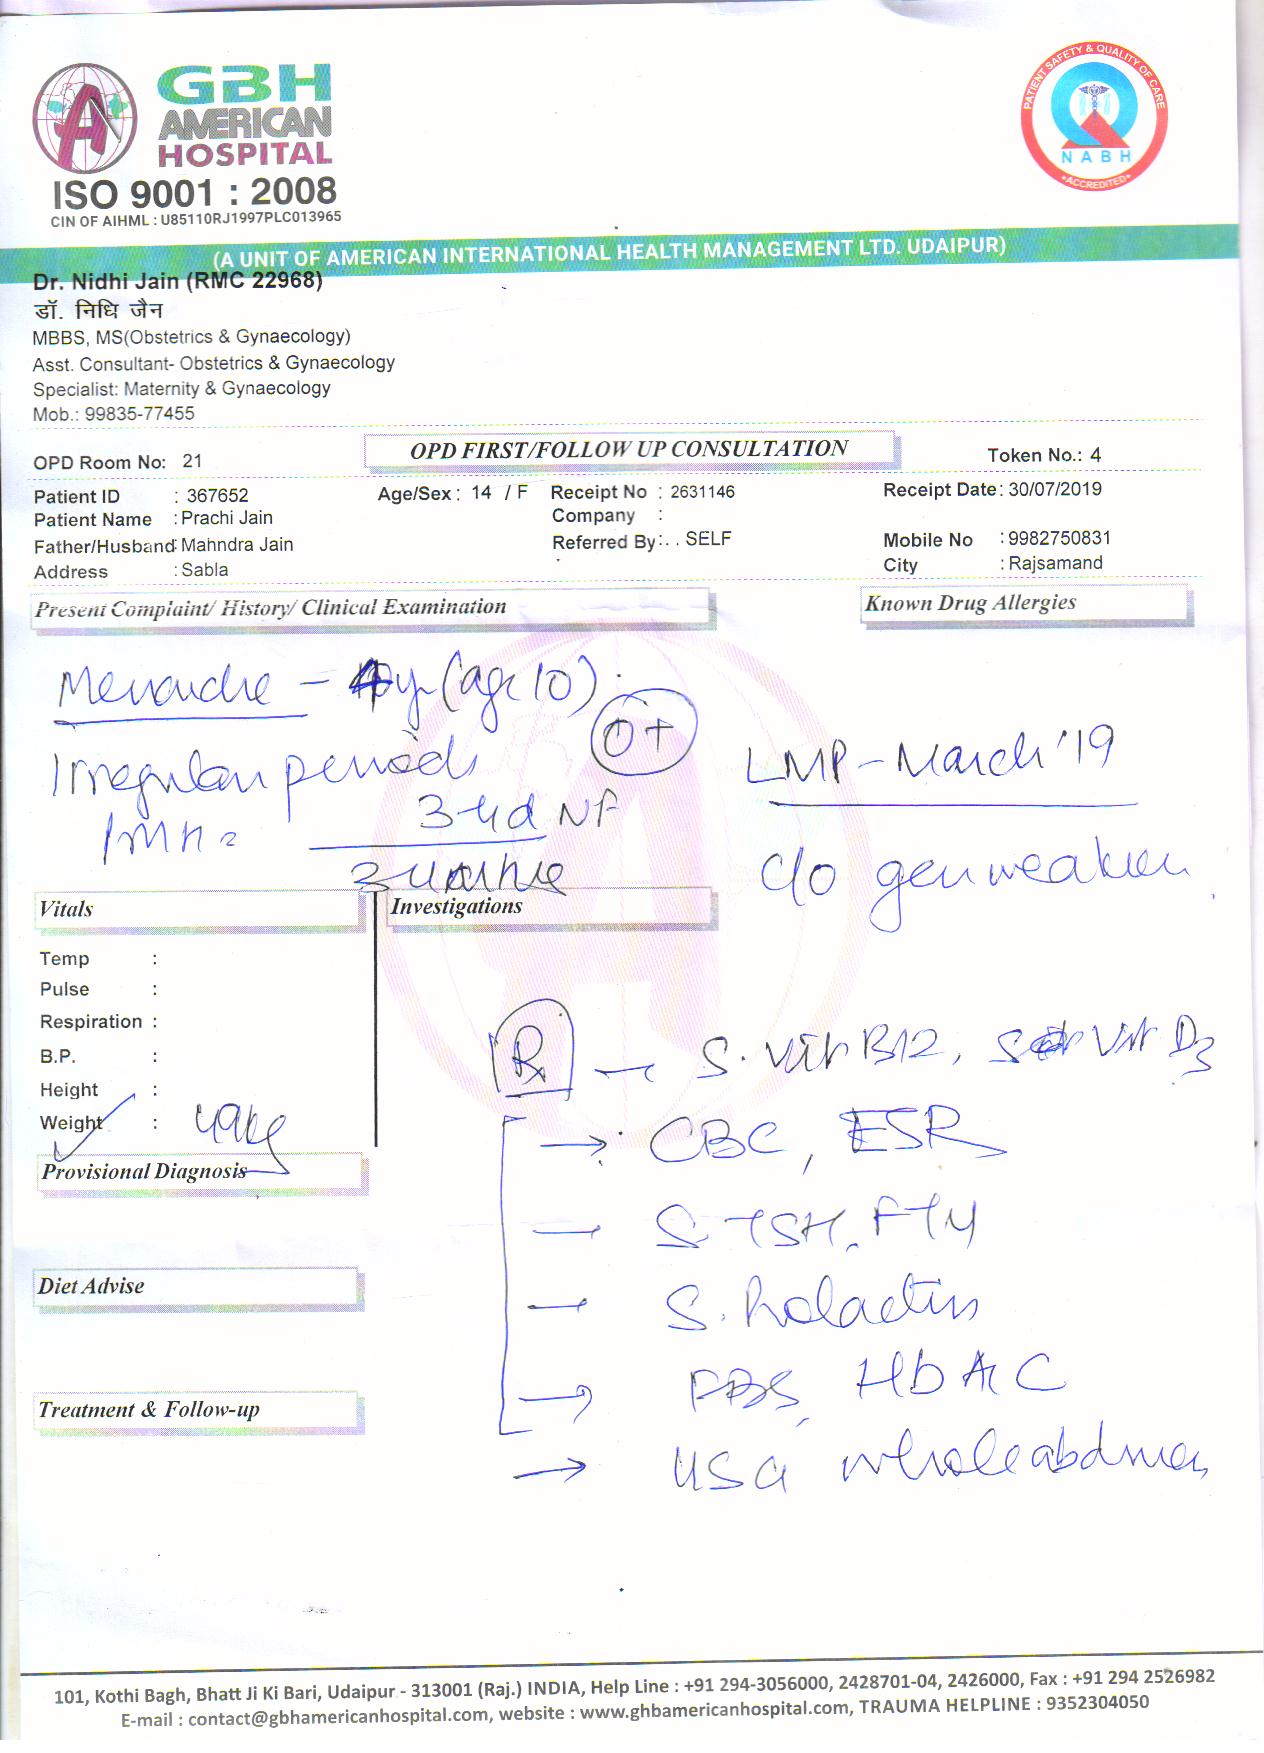 GBH
AMERICAN
HOSPITAL
ISO 9001 : 2008
CIN OF AIHML : U85110RJ1997PLC013965
PATIENT SAFETY & QUALITY OF CARE
NABH
• ACCREDITED •
(A UNIT OF AMERICAN INTERNATIONAL HEALTH MANAGEMENT LTD. UDAIPUR)
Dr. Nidhi Jain (RMC 22968)
डॉ. निधि जैन
MBBS, MS(Obstetrics & Gynaecology)
Asst. Consultant- Obstetrics & Gynaecology
Specialist: Maternity & Gynaecology
Mob.: 99835-77455
OPD Room No: 21 OPD FIRST/FOLLOW UP CONSULTATION Token No.: 4
Patient ID : 367652 Age/Sex : 14 / F Receipt No : 2631146 Receipt Date: 30/07/2019
Patient Name : Prachi Jain Company :
Father/Husband: Mahndra Jain Referred By:. . SELF Mobile No : 9982750831
Address : Sabla City : Rajsamand
Present Complaint/ History/ Clinical Examination Known Drug Allergies
Menarche - (age 10).
O+
Irregular periods LMP - March '19
3-4d NF
c/o gen weakness
Vitals Investigations
Temp :
Pulse :
Respiration :
B.P. :
Height :
Weight : 49kg
Rx - S. Vit B12, Vit D3
→ CBC, ESR
Provisional Diagnosis
- S. TSH, FT4
Diet Advise
- S. Prolactin
→ FBS, HbA1C
Treatment & Follow-up
→ USG whole abdomen
101, Kothi Bagh, Bhatt Ji Ki Bari, Udaipur - 313001 (Raj.) INDIA, Help Line : +91 294-3056000, 2428701-04, 2426000, Fax : +91 294 2526982
E-mail : contact@gbhamericanhospital.com, website : www.ghbamericanhospital.com, TRAUMA HELPLINE : 9352304050